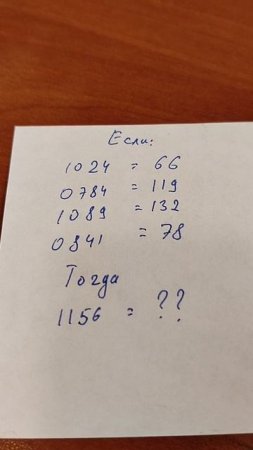 Если:
1024 = 66
0784 = 119
1089 = 132
0841 = 78
Тогда
1156 = ??